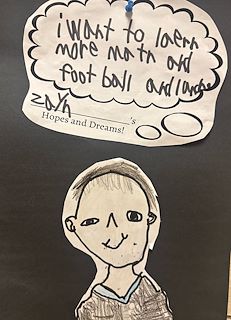 i want to laern
more math and
foot ball and
zayn 's
Hopes and Dreams!